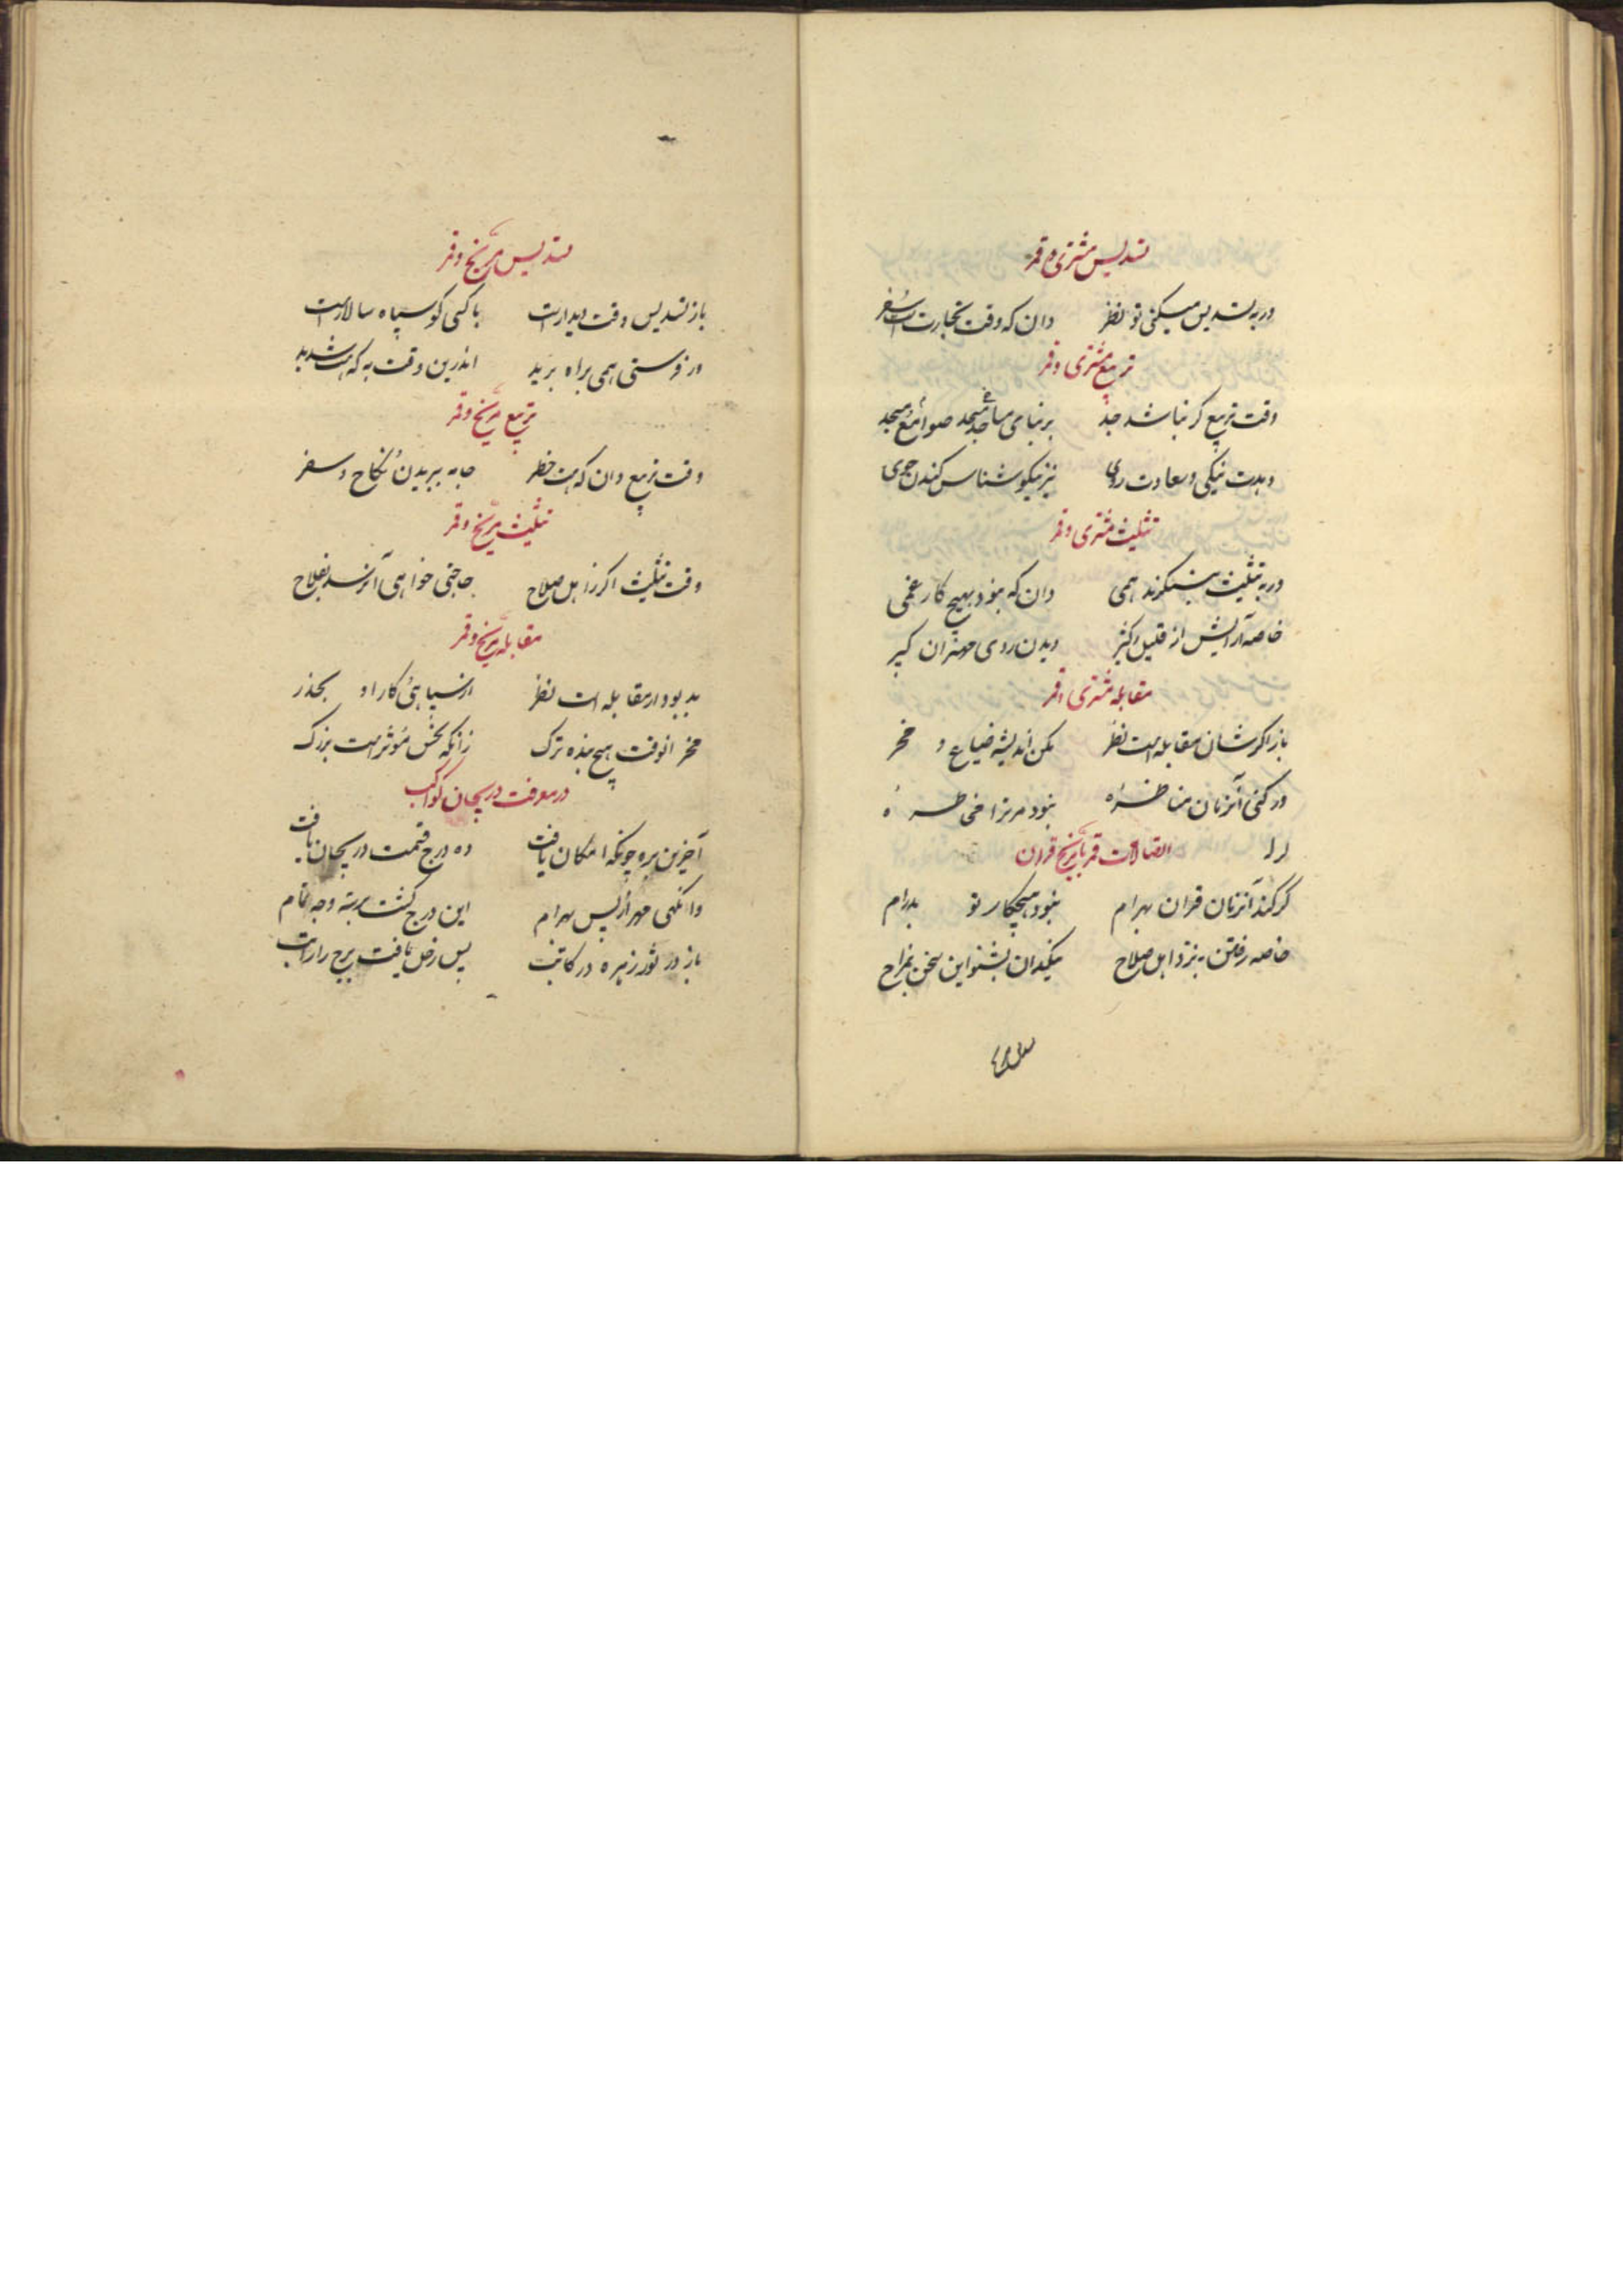 تسدیس مشتری و قمر
ور به تسدیس میکنی تو نظر دان که وقت تجارت است و سفر
تربیع مشتری و قمر
وقت تربیع کر نباشد جد بر بنای مساجد صوامع و مسجد
دهدت نیکی و سعادت روی نیز نیکو شناس کندن جوی
تثلیث مشتری و قمر
ور به تثلیث بنگرند همی دان که نبود بهیچ کار غمی
خاصه آرایش از قلیل و کثیر دیدن روی مهتران کبیر
مقابله مشتری و قمر
باز اکرشان مقابله است نظر مکن اندیشه ضیاع و مخر
ور کنی آنزمان مناظره نبود مر ترا مخاطره
اتصالات قمر با مریخ قران
کر کند آنزمان قران بهرام نبود هیچکار تو بدرام
خاصه رفتن به نزد اهل صلاح نیکدان بشنو این سخن بمزاح
تسدیس مریخ و قمر
باز تسدیس وقت دیدارست با کسی کو سپاه سالارست
ور فرستی همی براه برید اندرین وقت به که هست شدید
تربیع مریخ و قمر
وقت تربیع دان که هست خطر جامه ببریدن و نکاح و سفر
تثلیث مریخ و قمر
وقت تثلیث اکر ز اهل صلاح حاجتی خواهی آن رسد بفلاح
مقابله مریخ و قمر
بد بود ار مقابله است نظر از سپاهی و کار او بحذر
مخر انوقت هیچ بنده ترک زانکه نحس مؤثرست بزرک
در معرفت دریجان کواکب
آخرین بره چونکه امکان یافت ده درج قسمت دریجان یافت
وانکهی مهر از پس بهرام این درج کشت مرتبه وجه تمام
باز در ثور زهره در کاتب پس زحل یافت برج را راتب